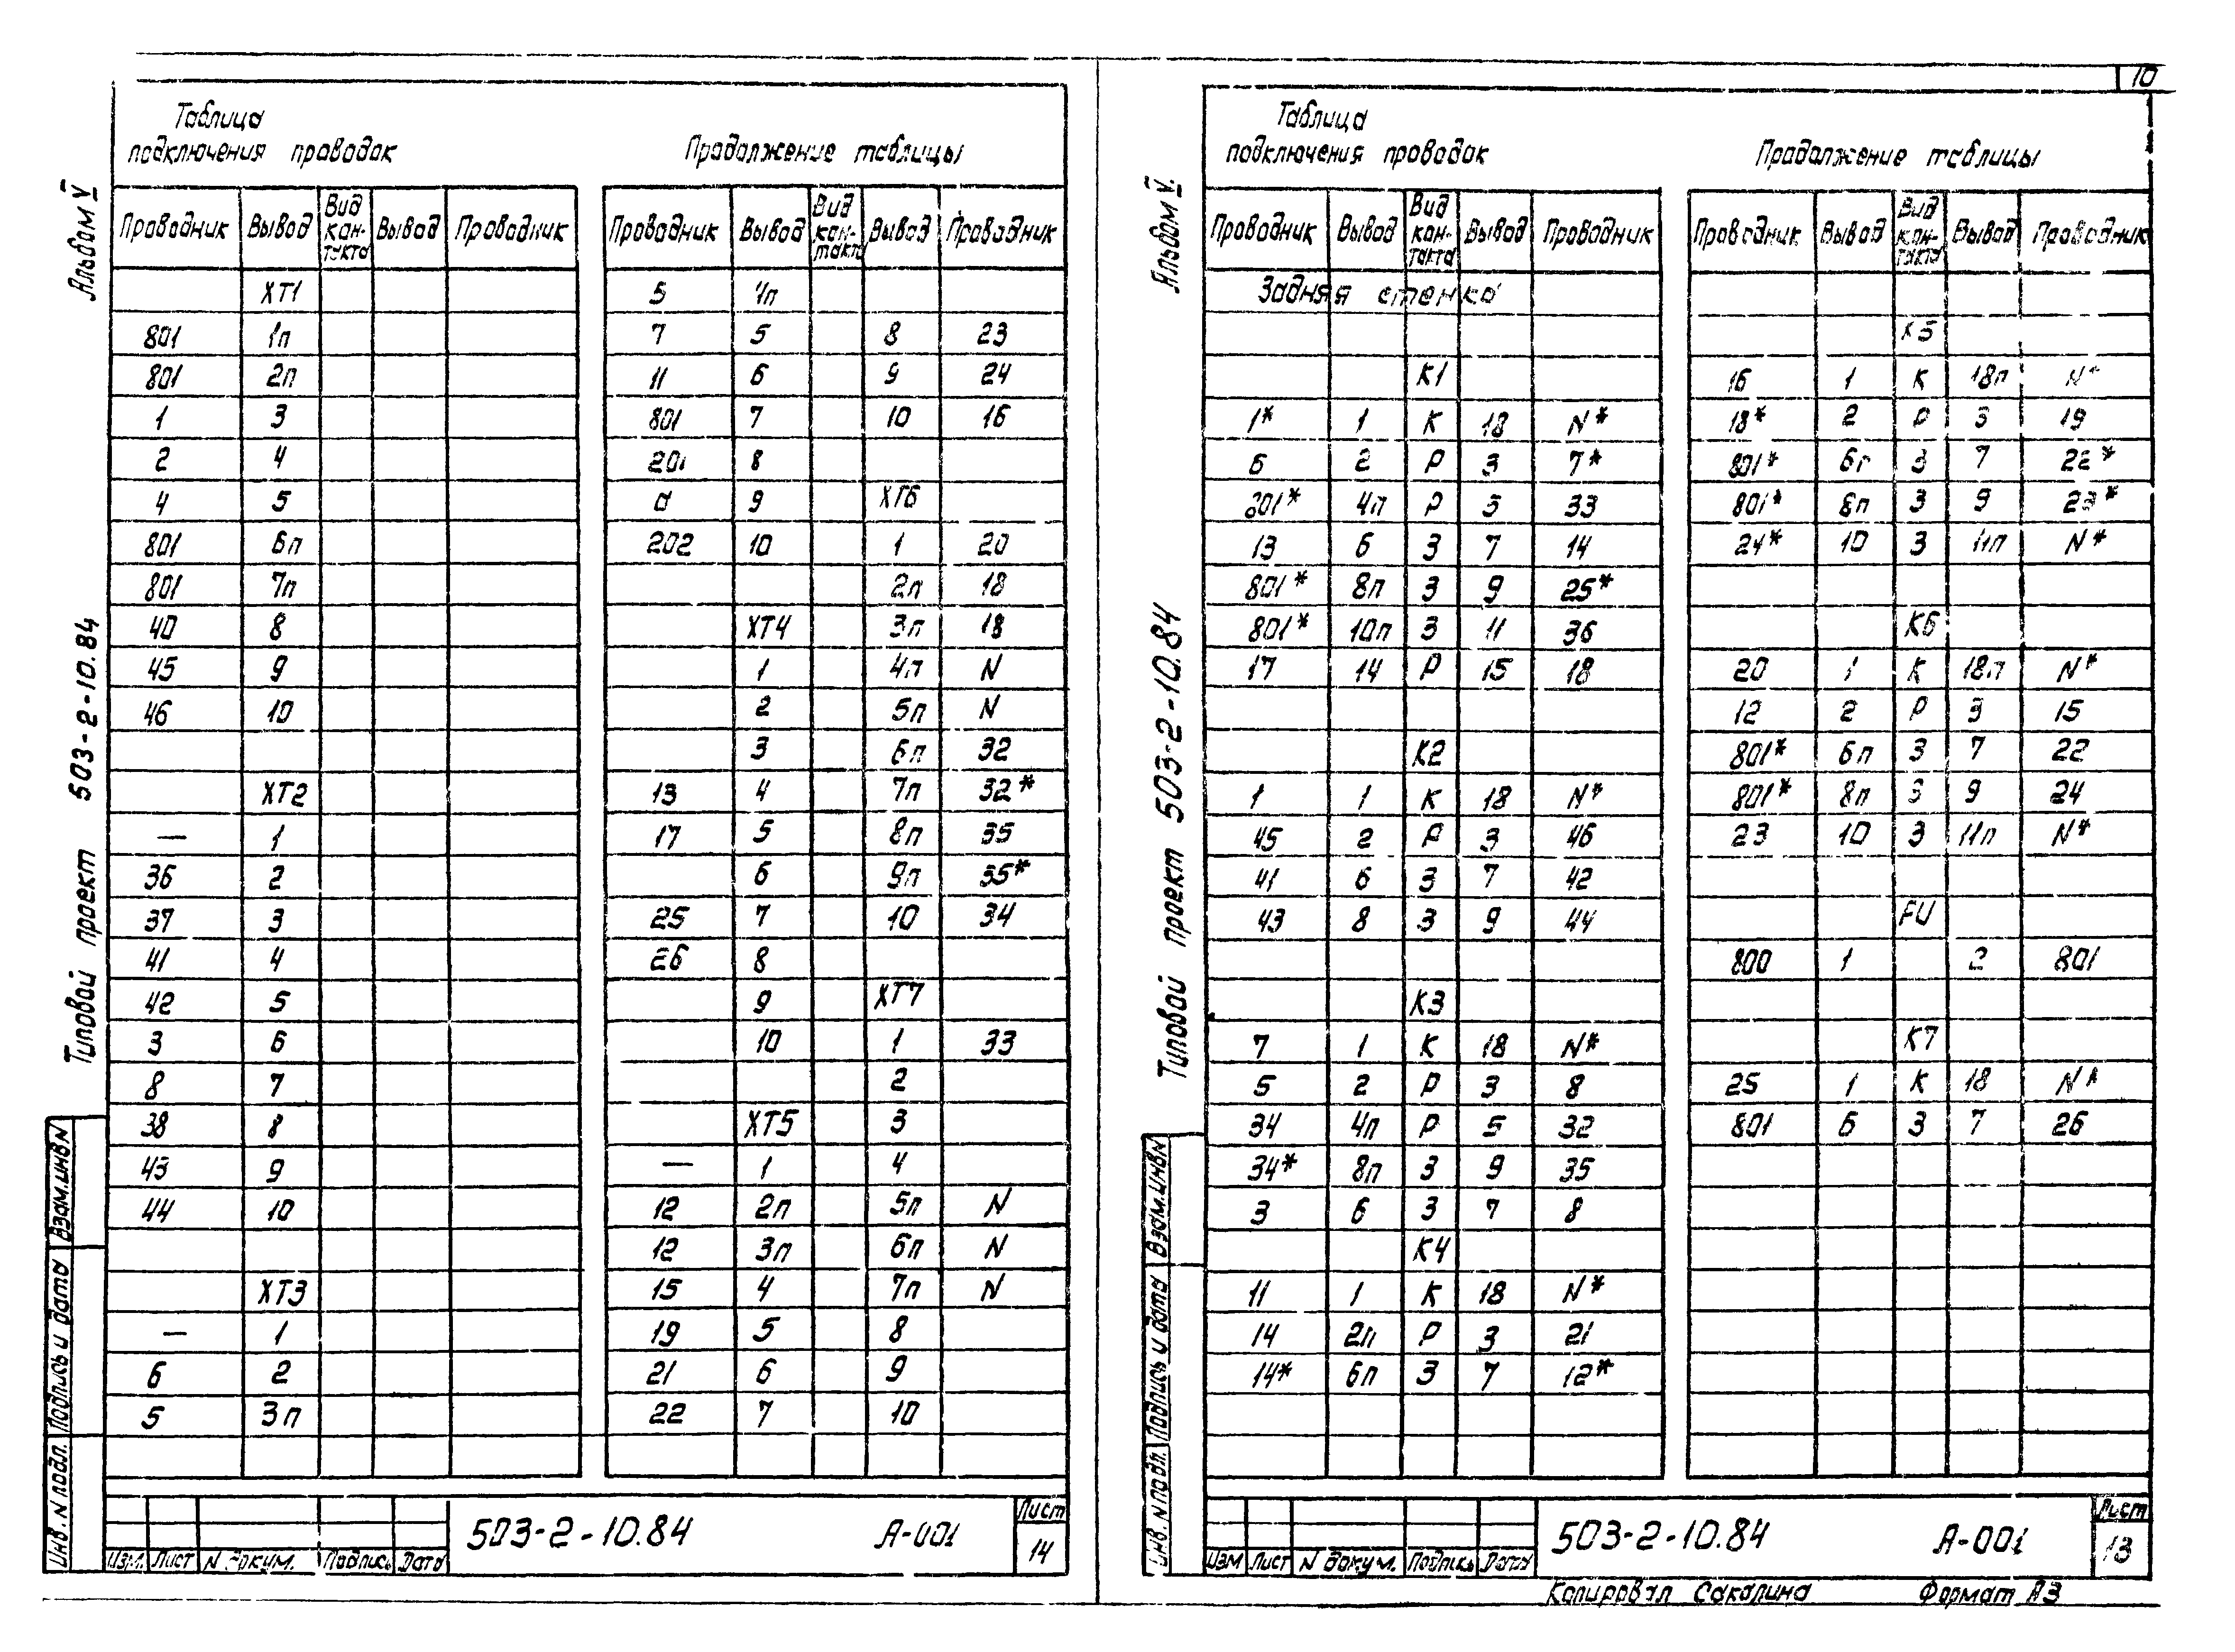 10
Альбом V
Типовой проект 503-2-10.84
Взам.инв.N
Подпись и дата
Инв. N подл.
Таблица
подключения проводок
Проводник Вывод Вид кон-такта Вывод Проводник
ХТ1
801 1п
801 2п
1 3
2 4
4 5
801 6п
801 7п
40 8
45 9
46 10
ХТ2
— 1
36 2
37 3
41 4
42 5
3 6
8 7
38 8
43 9
44 10
ХТ3
— 1
6 2
5 3п
Продолжение таблицы
Проводник Вывод Вид кон-такта Вывод Проводник
5 4п
7 5 8 23
11 6 9 24
801 7 10 16
201 8
9 ХТ6
202 10 1 20
2п 18
ХТ4 3п 18
1 4п N
2 5п N
3 6п 32
13 4 7п 32*
17 5 8п 35
6 9п 35*
25 7 10 34
26 8
9 ХТ7
10 1 33
2
ХТ5 3
— 1 4
12 2п 5п N
12 3п 6п N
15 4 7п N
19 5 8
21 6 9
22 7 10
Изм. Лист N докум. Подпись Дата
503-2-10.84 А-001
Лист
14
Альбом V.
Типовой проект 503-2-10.84
Взам.инв.N
Подпись и дата
Инв. N подл.
Таблица
подключения проводок
Проводник Вывод Вид кон-такта Вывод Проводник
Задняя стенка
К1
1* 1 К 18 N*
6 2 Р 3 7*
801* 4п Р 5 33
13 6 З 7 14
801* 8п З 9 25*
801* 10п З 11 36
17 14 Р 15 18
К2
1 1 К 18 N*
45 2 Р 3 46
41 6 З 7 42
43 8 З 9 44
К3
7 1 К 18 N*
5 2 Р 3 8
34 4п Р 5 32
34* 8п З 9 35
3 6 З 7 8
К4
11 1 К 18 N*
14 2п Р 3 21
14* 6п З 7 12*
Продолжение таблицы
Проводник Вывод Вид кон-такта Вывод Проводник
К5
16 1 К 18п N*
18* 2 Р 3 19
801* 6п З 7 22*
801* 8п З 9 23*
24* 10 З 11п N*
К6
20 1 К 18п N*
12 2 Р 3 15
801* 6п З 7 22
801* 8п З 9 24
23 10 З 11п N*
FU
800 1 2 801
К7
25 1 К 18 N*
801 6 З 7 26
Изм Лист N докум. Подпись Дата
503-2-10.84 А-001
Лист
13
Копировал Сакалина Формат А3